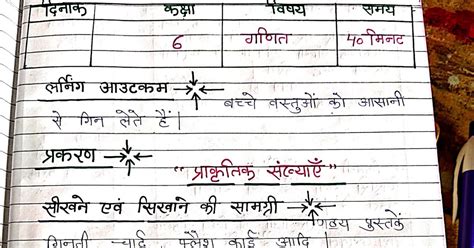 दिनांक कक्षा विषय समय
6 गणित 40 मिनट
लर्निंग आउटकम बच्चे वस्तुओं को आसानी
से गिन लेते हैं।
प्रकरण
"प्राकृतिक संख्याएँ"
सीखने एवं सिखाने की सामग्री पाठ्य पुस्तकें
गिनती चार्ट, फ्लैश कार्ड आदि